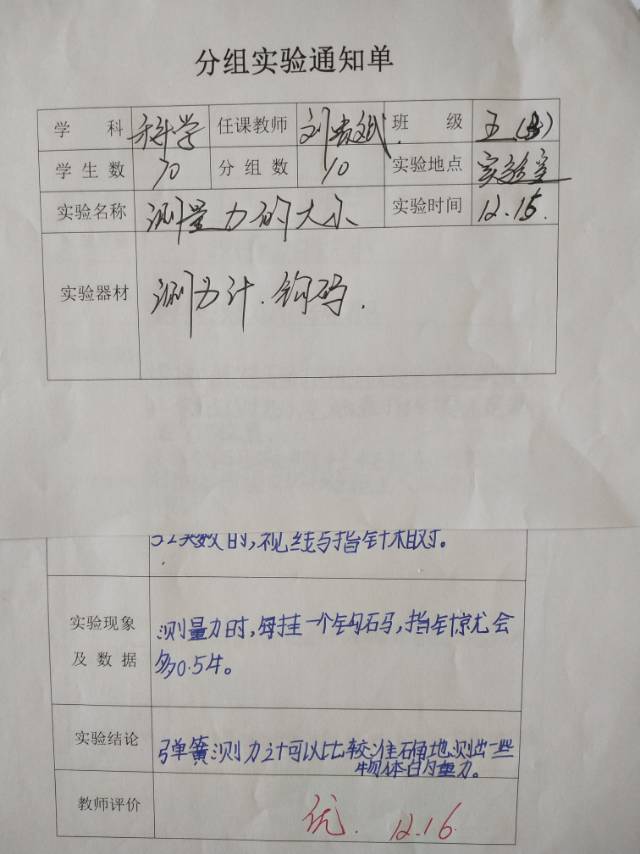 分组实验通知单
学 科 科学 任课教师 刘 班 级 五
学生数 70 分组数 10 实验地点 实验室
实验名称 测量力的大小 实验时间 12.15.
实验器材 测力计.钩码.
时,视线与指针相对。
实验现象 测量力时,每挂一个钩码,指针就会
及数据 多0.5牛。
实验结论 弹簧测力计可以比较准确地测出一些
物体的重力。
教师评价 优. 12.16.